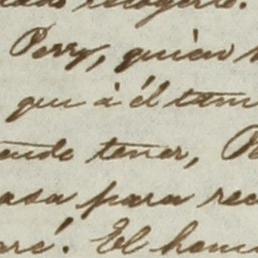 recogerlo.
Perry, quien
que à él tam
tener, Pe
asa para rec
aré. El hom